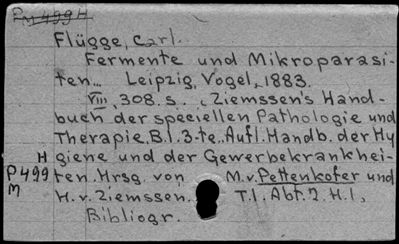 P M 499 H
Flügge, Carl.
Fermente und Mikroparasi-
ten... Leipzig, Vogel, 1883.
VIII, 308. s. (Ziemssen's Hand-
buch der speciellen Pathologie und
Therapie. B.1. 3-te. Aufl. Handb. der Hy
H giene und der Gewerbekrankhei-
P499 ten. Hrsg. von M.v. Pettenkofer und
M H. v. Ziemssen. T.1. Abt. 2. H.1,
Bibliogr.